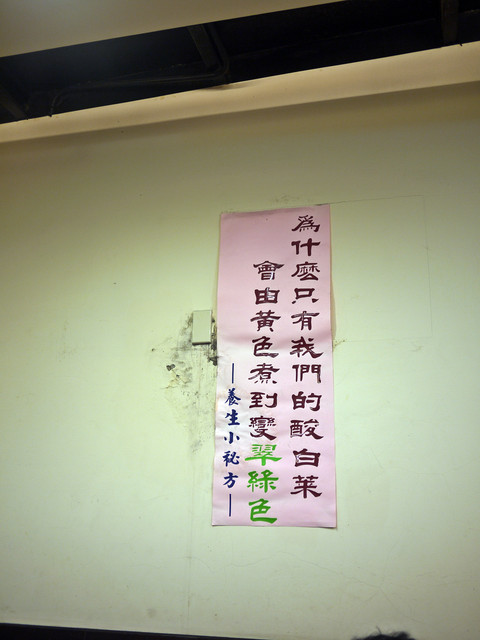 為什麼只有我們的酸白菜
會由黃色煮到變翠綠色
—養生小祕方—